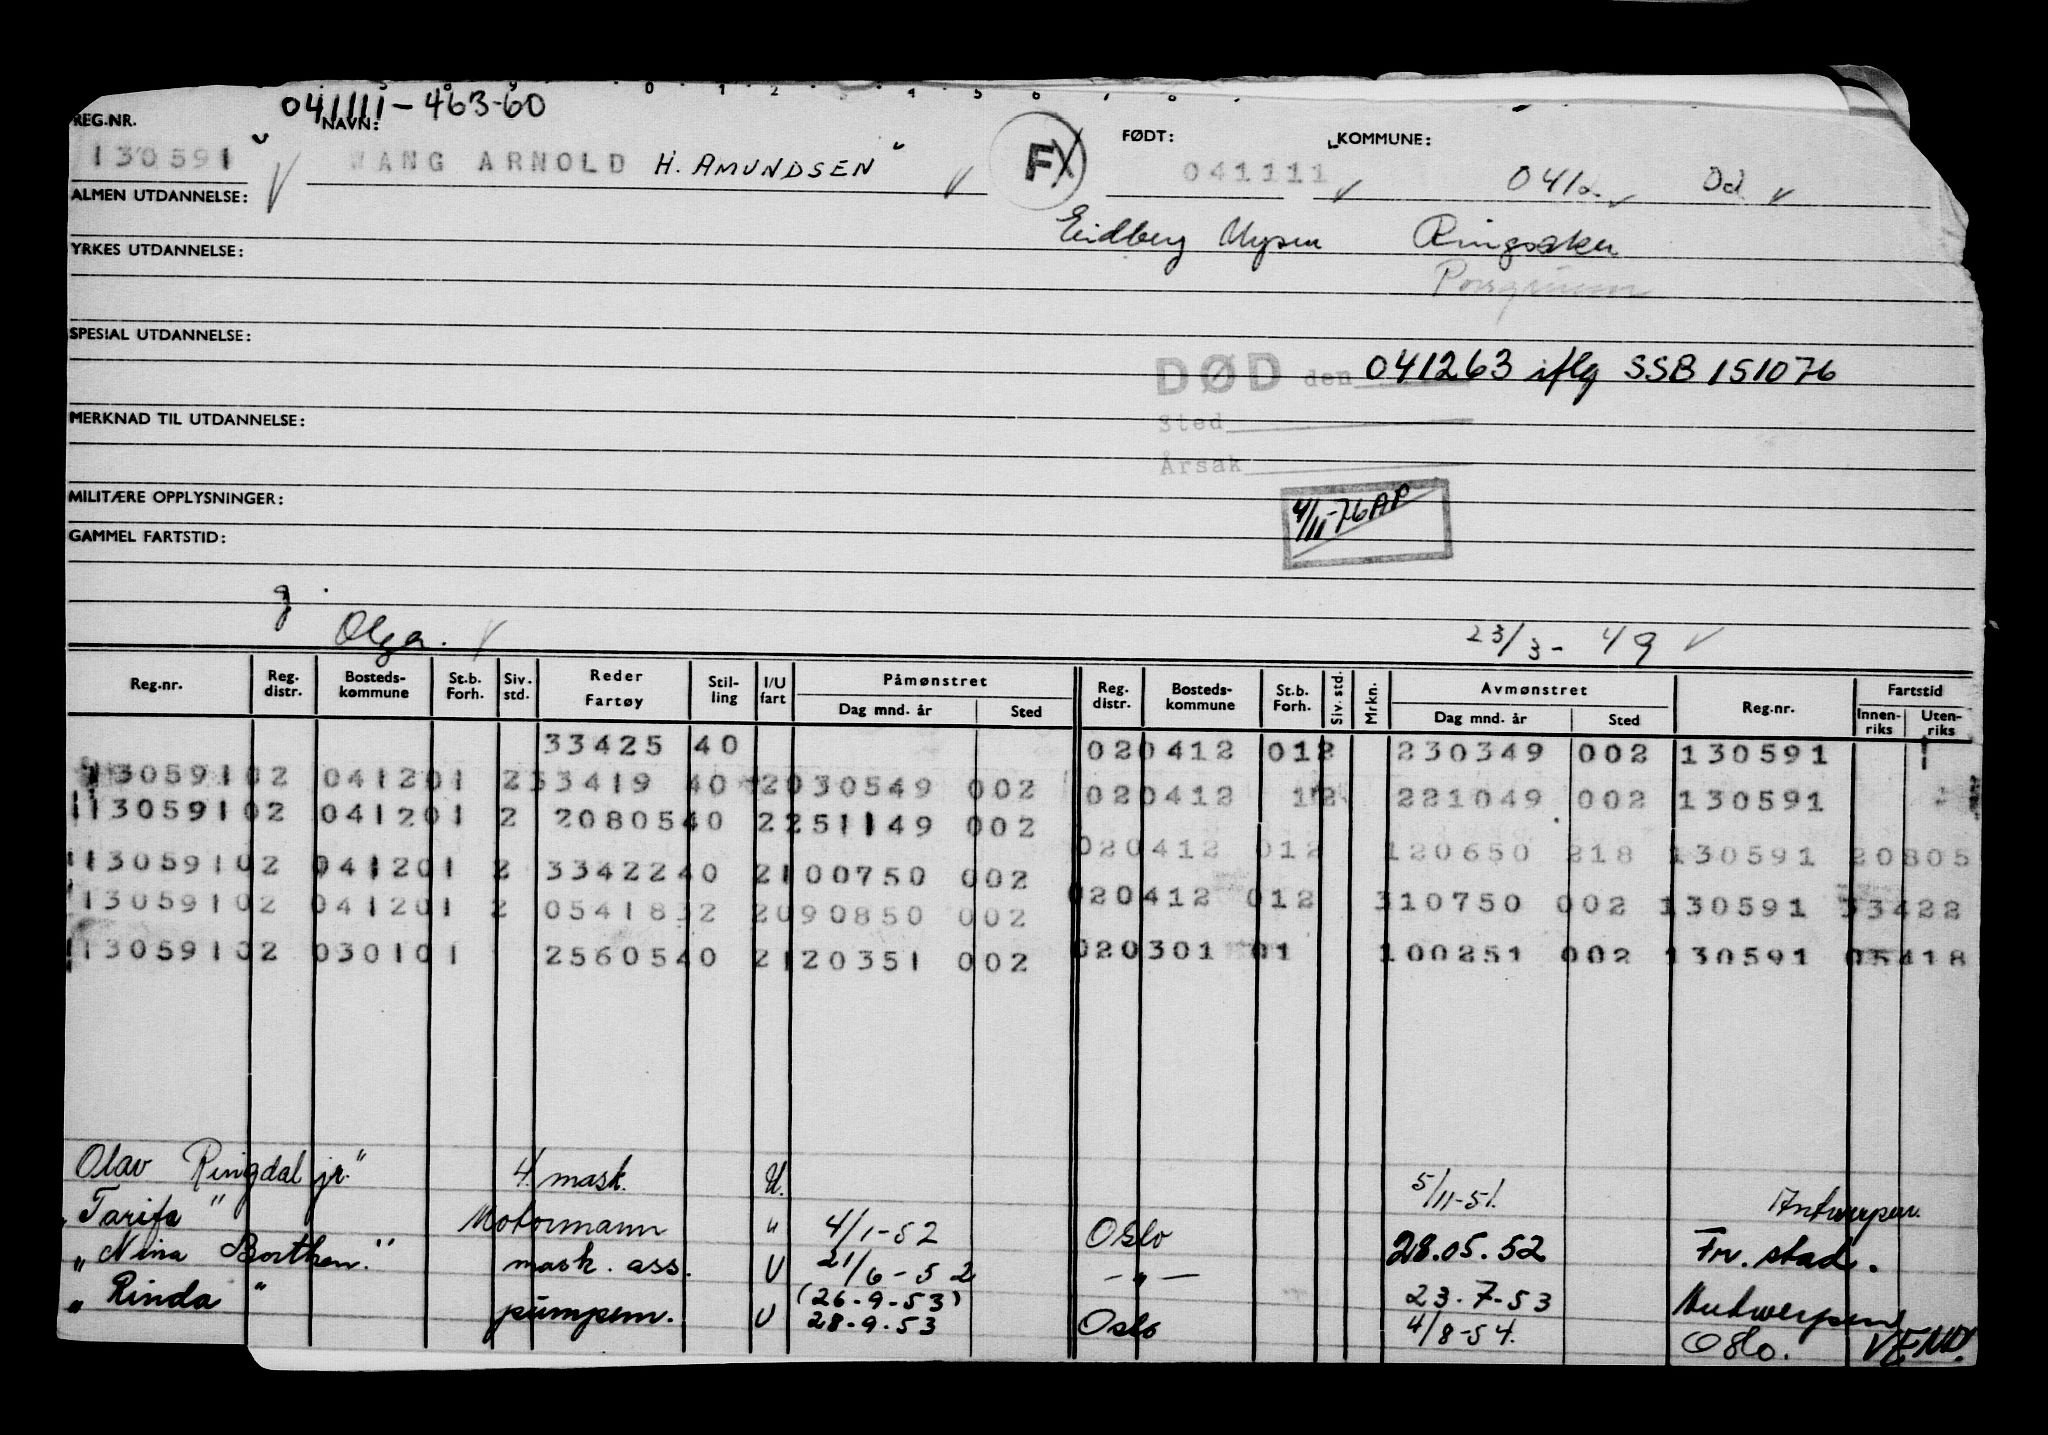 041111-463-60
REG.NR. NAVN: FØDT: KOMMUNE:
130591 WANG ARNOLD H. AMUNDSEN FX 041111 041 Od
ALMEN UTDANNELSE:
Eidberg Mysen Ringsaker
YRKES UTDANNELSE:
Porsgrunn
SPESIAL UTDANNELSE:
DØD den 041263 iflg SSB 151076
MERKNAD TIL UTDANNELSE:
Sted
Årsak
MILITÆRE OPPLYSNINGER:
4/11-76 AP
GAMMEL FARTSTID:
Olga. 23/3-49
Reg.nr. Reg. distr. Bosteds-kommune St.b. Forh. Siv. std. Reder Fartøy Stil-ling I/U fart Påmønstret Dag mnd. år Sted Reg. distr. Bosteds-kommune St.b. Forh. Siv. std. Mrkn. Avmønstret Dag mnd. år Sted Reg.nr. Fartstid Innen-riks Uten-riks
33425 40 020412 012 230349 002 130591
13059102 041201 253419 40 2030549 002 020412 12 221049 002 130591
13059102 041201 2 2080540 2251149 002 020412 012 120650 218 130591 20805
13059102 041201 2 3342240 2100750 002 020412 012 310750 002 130591 33422
13059102 041201 2 0541832 2090850 002 020301 01 100251 002 130591 05418
13059102 030101 2560540 2120351 002
Olav Ringdal jr." 4. mask. U. 5/11-51. Antwerpen.
"Tarifa" Motormann " 4/1-52 Oslo 28.05.52 Fr. stad.
"Nina Borthen." mask. ass. U 21/6-52 -"- 23.7-53 Antwerpen
"Rinda" pumpem. U (26-9-53) 28-9-53 Oslo 4/8-54. Oslo. VEND.